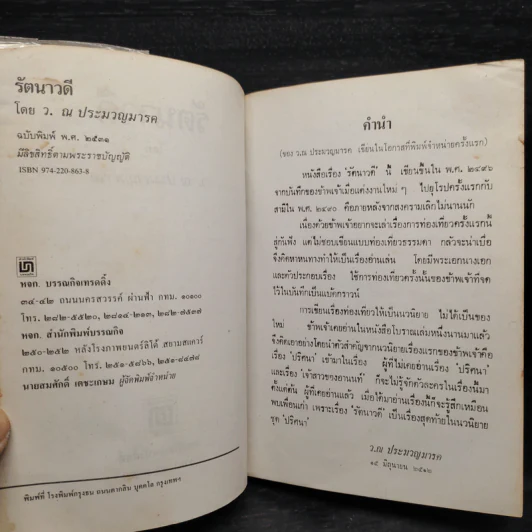 รัตนาวดี
โดย ว. ณ ประมวญมารค
ฉบับพิมพ์ พ.ศ. ๒๕๓๑
มีลิขสิทธิ์ตามพระราชบัญญัติ
ISBN 974-220-863-8
หจก. บรรณกิจเทรดดิ้ง
๓๔-๔๒ ถนนนครสวรรค์ ผ่านฟ้า กทม. ๑๐๑๐๐
โทร. ๒๘๒-๕๕๒๐, ๒๘๑๔-๒๑๓, ๒๘๒-๗๕๓๗
หจก. สำนักพิมพ์บรรณกิจ
๒๕๐-๒๕๒ หลังโรงภาพยนตร์ลิโด้ สยามสแควร์
กทม. ๑๐๕๐๐ โทร. ๒๕๑-๕๘๖๖, ๒๕๑-๔๔๗๘
นายสมศักดิ์ เตชะเกษม ผู้จัดพิมพ์จำหน่าย
พิมพ์ที่ โรงพิมพ์กรุงธน ถนนตากสิน บุคคโล กรุงเทพฯ
คำนำ
(ของ ว.ณ ประมวญมารค เขียนในโอกาสที่พิมพ์จำหน่ายครั้งแรก)
หนังสือเรื่อง 'รัตนาวดี' นี้ เขียนขึ้นใน พ.ศ. ๒๔๙๖
จากบันทึกของข้าพเจ้าเมื่อแต่งงานใหม่ ๆ ไปยุโรปครั้งแรกกับ
สามีใน พ.ศ. ๒๔๙๐ คือภายหลังจากสงครามเลิกไม่นานนัก
เนื่องด้วยข้าพเจ้าอยากจะเล่าเรื่องการท่องเที่ยวครั้งแรกนี้
สู่กันฟัง แต่ไม่ชอบเขียนแบบท่องเที่ยวธรรมดา กลัวจะน่าเบื่อ
จึงคิดหาหนทางทำให้เป็นเรื่องอ่านเล่น โดยมีพระเอกนางเอก
และตัวประกอบเรื่อง ใช้การท่องเที่ยวครั้งนั้นของข้าพเจ้าที่จด
ไว้ในบันทึกเป็นแบ๊คกราวน์
การเขียนเรื่องท่องเที่ยวให้เป็นนวนิยาย ไม่ได้เป็นของ
ใหม่ ข้าพเจ้าเคยอ่านในหนังสือโบราณเล่มหนึ่งนานมาแล้ว
จึงคิดเอาอย่างโดยนำตัวสำคัญจากนวนิยายเรื่องแรกของข้าพเจ้าคือ
เรื่อง 'ปริศนา' เข้ามาในเรื่อง ผู้ที่ไม่เคยอ่านเรื่อง 'ปริศนา'
และเรื่อง 'เจ้าสาวของอานนท์' ก็จะไม่รู้จักตัวละครในเรื่องนี้มา
ตั้งแต่ต้น ผู้ที่เคยอ่านแล้ว เมื่อได้มาอ่านเรื่องนี้ก็จะรู้สึกเหมือน
พบเพื่อนเก่า เพราะเรื่อง 'รัตนาวดี' เป็นเรื่องสุดท้ายในนวนิยาย
ชุด 'ปริศนา'
ว.ณ ประมวญมารค
๑๕ มิถุนายน ๒๕๑๒